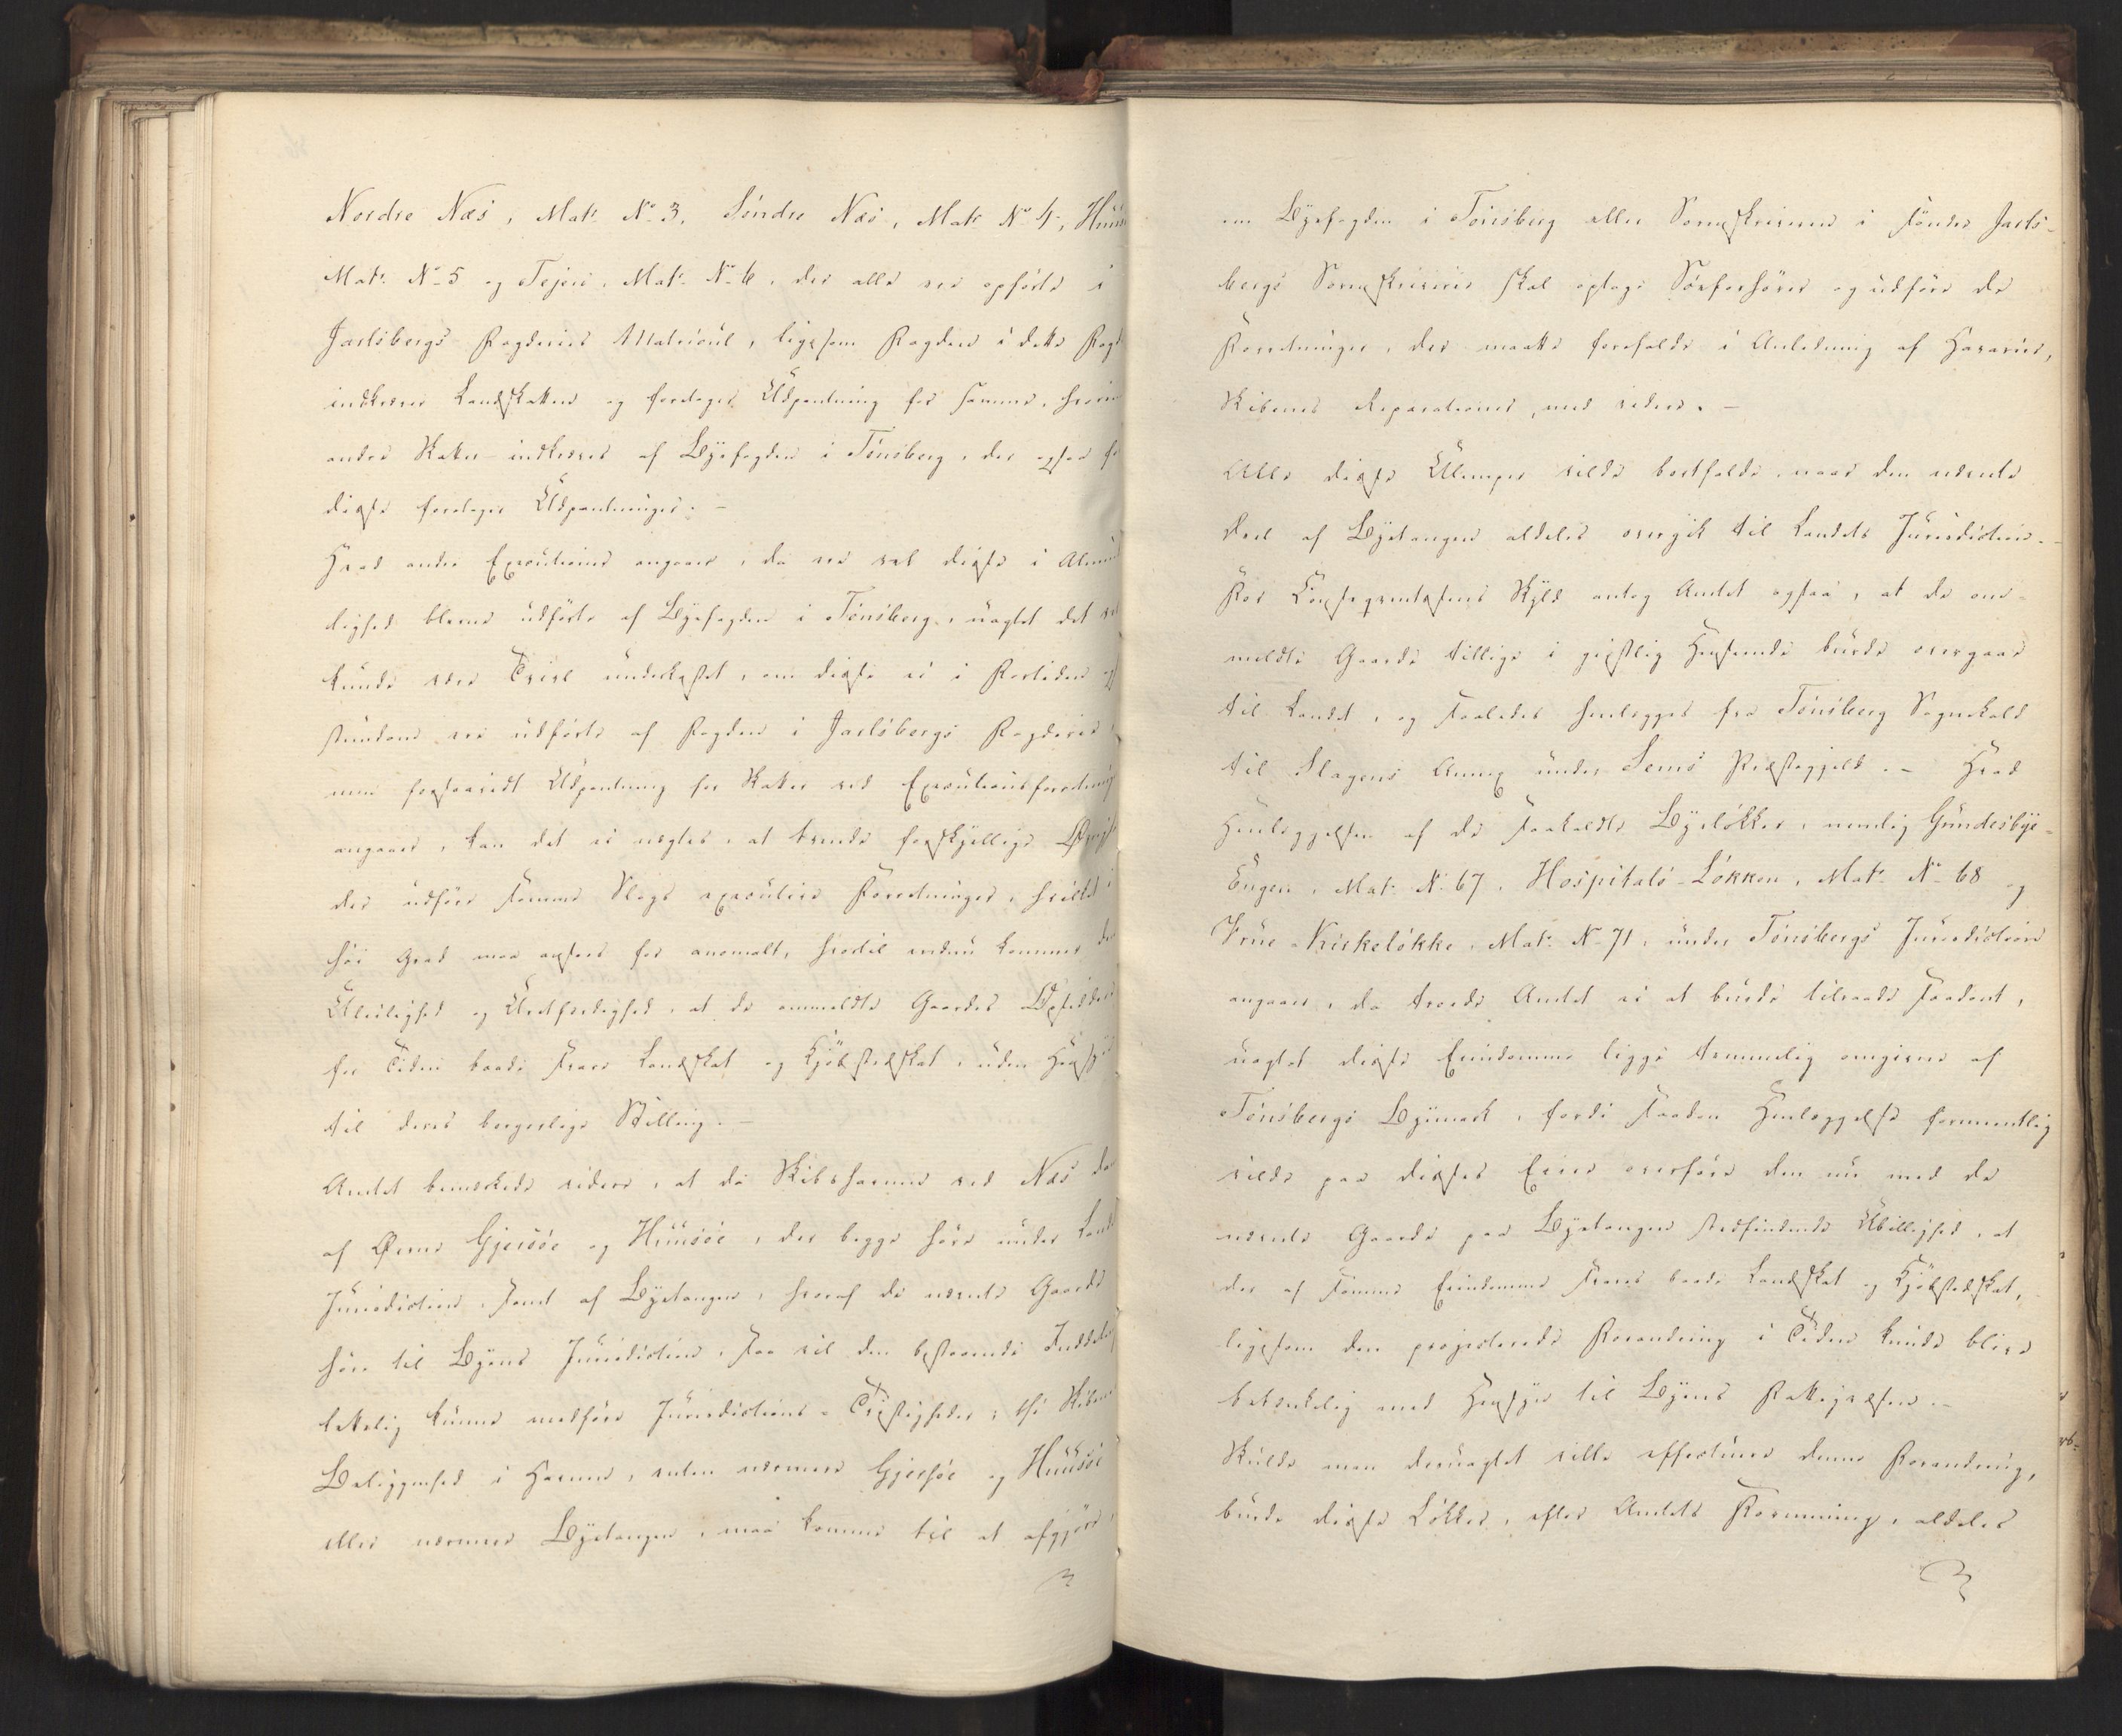 Nordre Næs, Matr. No 3, Søndre Næs, Matr No 4, Huus
Matr. No 5 og Tejeri, Matr. No 6, der alle ere opførte i
Jarlsbergs Fogderies Matricul, ligesom Fogden i dette Fogd
indkræver Landskatten og foretager Udpantning for samme, hvorim
andre Skatter indkræves af Byefogden i Tønsberg, der ogsaa for
disse foretager Udpantninger. -
Hvad andre Executioner angaaer, da ere vel disse i Almin
delighed blevne udførte af Byefogden i Tønsberg, uagtet det vel
kunde være Tvivl underkastet, om disse ei i Fortiden og
stundom ere udførte af Fogden i Jarlsbergs Fogderie,
men forsaavidt Udpantning for Skatter ved Executionsforretning
angaaer, kan det ei nægtes, at tvende forskjellige Øvrigh
der udføre samme Slags executive Forretninger, hvilket i
høi Grad maa ansees for anomalt, hvortil endnu kommer den
Ubillighed og Uretfærdighed, at de ommeldte Gaardes Opsiddere
for Tiden baade svare Landskat og Kjøbstedskat, uden Hensyn
til deres borgerlige Stilling. -
Amtet bemærkede videre, at da Skibshavnen ved Næs da
af Øerne Gjersøe og Huusøe, der begge høre under Landets
Jurisdiction, samt af Byetangen, hvoraf de nævnte Gaarde
høre til Byens Jurisdiction, saa vil den bestaaende Inddeling
lettelig kunne medføre Jurisdictions-Tvistigheder; thi Skibenes
Beliggenhed i Havnen, enten nærmere Gjersøe og Huusøe
eller nærmere Byetangen, maa komme til at afgjøre,
om Byefogden i Tønsberg eller Sorenskriveren i søndre Jarls-
bergs Sorenskriverie skal optage Søeforhører og udføre de
Forretninger, der maatte forefalde i Anledning af Havarier,
Skibenes Reparationer, med videre. -
Alle disse Ulemper vilde bortfalde, naar den nævnte
Deel af Byetangen aldeles overgik til Landets Jurisdiction. -
For Conseqventsens Skyld antog Amtet ogsaa, at de om-
meldte Gaarde tillige i geistlig Henseende burde overgaae
til Landet, og saaledes henlægges fra Tønsberg Sognekald
til Slagens Annex under Sems Præstegjeld. - Hvad
Henlæggelsen af de saakaldte Byeløkker, nemlig Gundesbye-
Engen, Matr. No 67, Hospitals-Løkken, Matr. No 68 og
Frue-Kirkeløkke, Matr. No 71, under Tønsbergs Jurisdiction
angaaer, da troede Amtet ei at burde tilraade saadant,
uagtet disse Eiendomme ligge temmelig omgivne af
Tønsbergs Byemark, fordi saadan Henlæggelse formeentlig
vilde paa disses Eiere overføre den nu med de
nævnte Gaarde paa Byetangen stedfindende Ubillighed, at
der af samme Eiendomme svares baade Landskat og Kjøbstedskat,
ligesom den projecterede Forandring i Tiden kunde blive
betænkelig med Hensyn til Byens Fattigvæsen. -
Skulde man desuagtet ville effectuere denne Forandring,
burde disse Løkker, efter Amtets Formening, aldeles